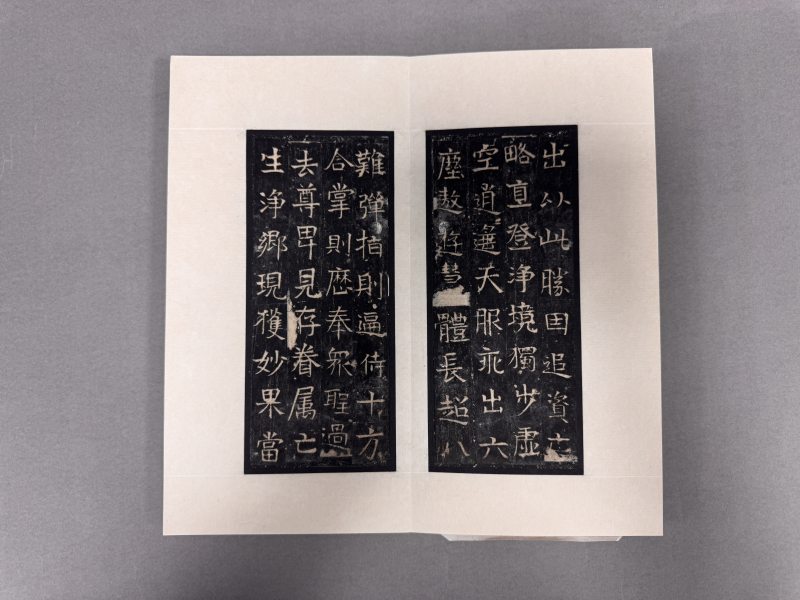 出以此勝因追資亡
略直登淨境獨步虛
空逍遙天服乖出六
塵遨遊慧體長超八
難彈指則遍侍十方
合掌則歷奉眾聖過
去尊卑見存眷属亡
生淨鄉現獲妙果當